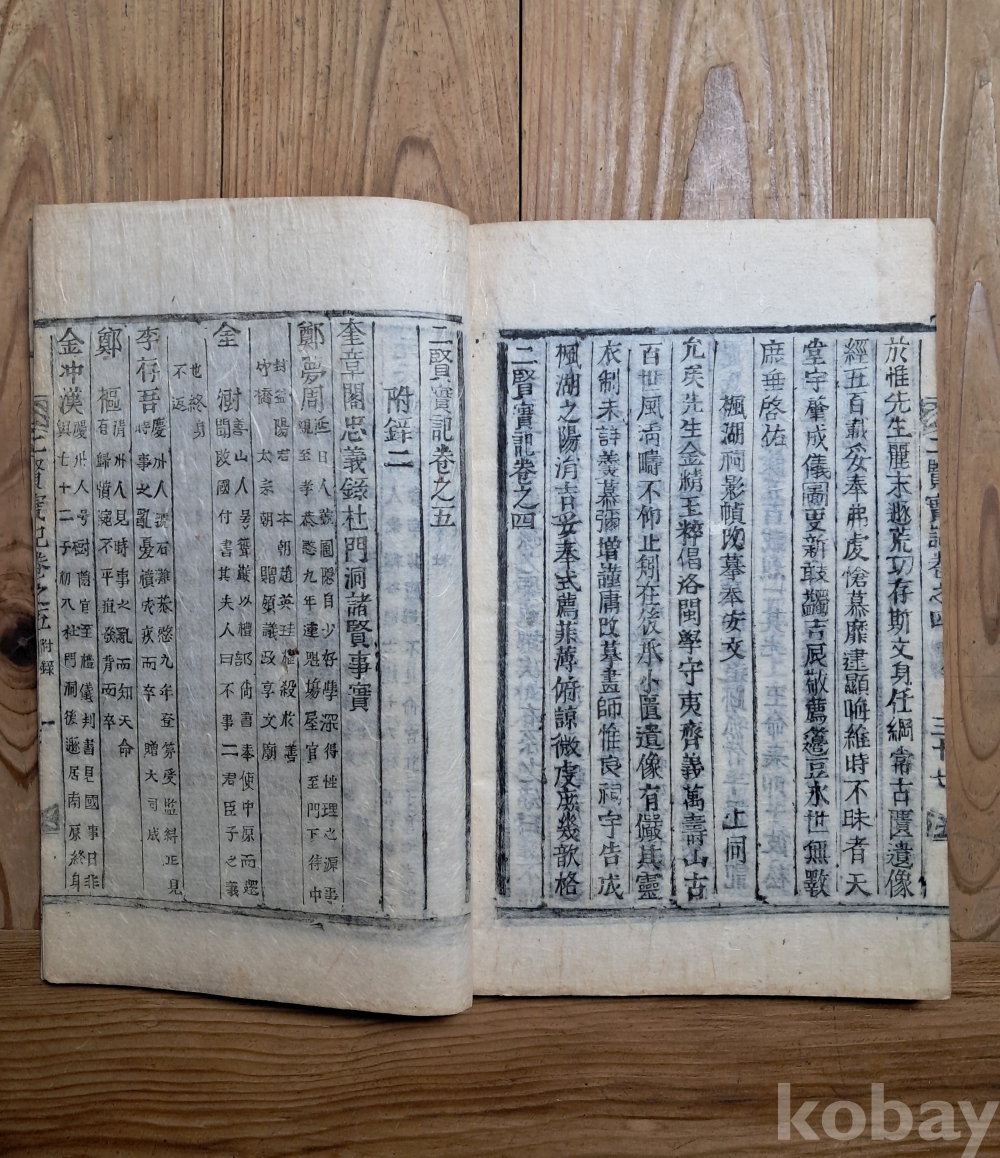 於惟先生麗末遯荒功存斯文身任綱常古匵遺像
經五百載妥奉弗虔愴慕靡逮顯晦維時不昧者天
堂宇肇成儀圖更新敢蠲吉辰敬薦籩豆永世無斁
庶垂啓佑
楓湖祠影幀改摹奉安文
允矣先生金精玉粹倡洛閩學守夷齊義萬壽山古
百世風淸疇不仰止矧在後承小匵遺像有儼其靈
衣制未詳羹慕彌增謹庸改摹畫師惟良祠宇告成
楓湖之陽涓吉妥奉式薦菲薄俯諒微虔庶幾歆格
二賢實記卷之四
二賢實記卷之五
附錄二
奎章閣忠義錄杜門洞諸賢事實
鄭夢周 延日人號圃隱自少好學深得性理之源事
親至孝恭愍九年連魁場屋官至門下侍中
封益陽君 本朝趙英珪椎殺於善
竹橋 太宗朝贈領議政享文廟
金澍 善山人号籠巖以禮部尙書奉使中原而還
聞改國付書其夫人曰不事二君臣子之義
也終身
不返
李存吾 慶州人號石灘恭愍九年登第受監糾正見
時事之亂憂憤成疾而卒 贈大司成
鄭樞 淸州人見時事之亂而知天命
吾歸憤惋不平發背而卒
金冲漢 慶州人号樹隱官至禮儀判書見國事日非
與七十二子初入杜門洞後遯居南原終身
二賢實記卷之五 附錄 一